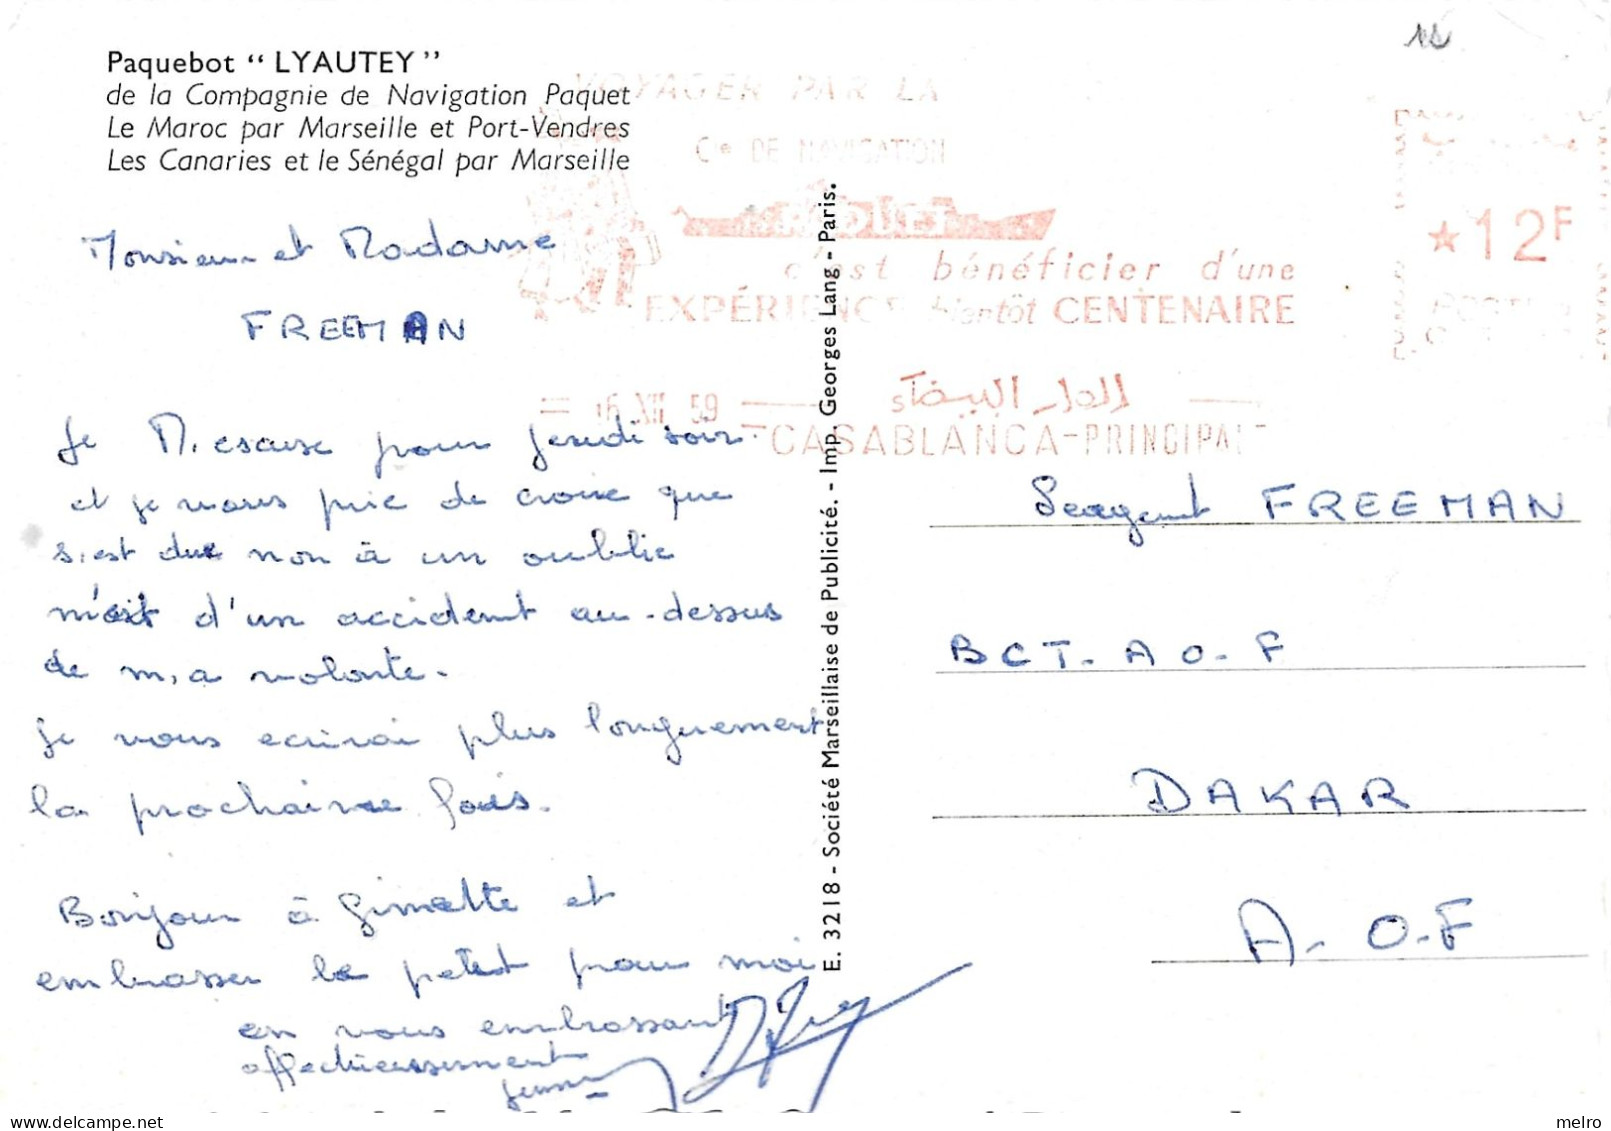 Paquebot “ LYAUTEY ”
de la Compagnie de Navigation Paquet
Le Maroc par Marseille et Port-Vendres
Les Canaries et le Sénégal par Marseille
VOYAGER PAR LA
Cie DE NAVIGATION
PAQUET
c'est bénéficier d'une
EXPÉRIENCE bientôt CENTENAIRE
★12F
16 XII 59
الدار البيضاء
CASABLANCA-PRINCIPAL
Monsieur et Madame
FREEMAN
Je M.escuse pour jeudi soir.
et je vous prie de croire que
s.est due non à un oublie
mais d'un accident au-dessus
de m,a volonte.
Je vous ecrirai plus longuement
la prochaine fois.
Bonjour à Ginette et
embrasser le petit pour moi
en vous embrassant
affectueusement
E. 3218 - Société Marseillaise de Publicité. - Imp. Georges Lang - Paris.
Sergent FREEMAN
BCT. A O. F
DAKAR
A. O.F
melro